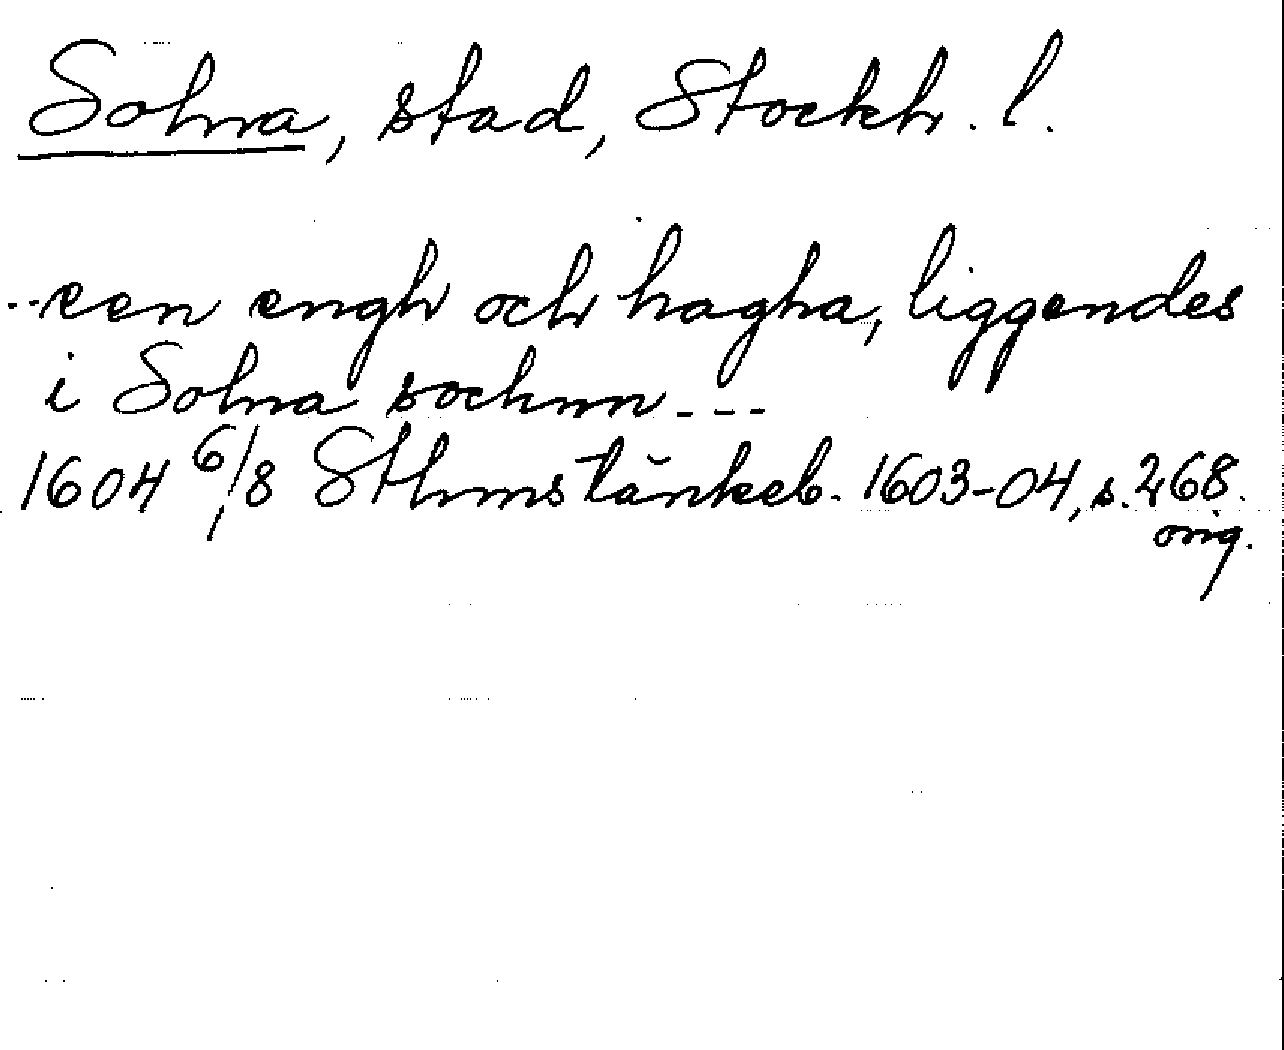 Solna, stad, Stockh. l.
--een engh och hagha, liggendes
i Solna sochnn---
1604 6/8 Sthms tänkeb. 1603-04, s. 268.
orig.